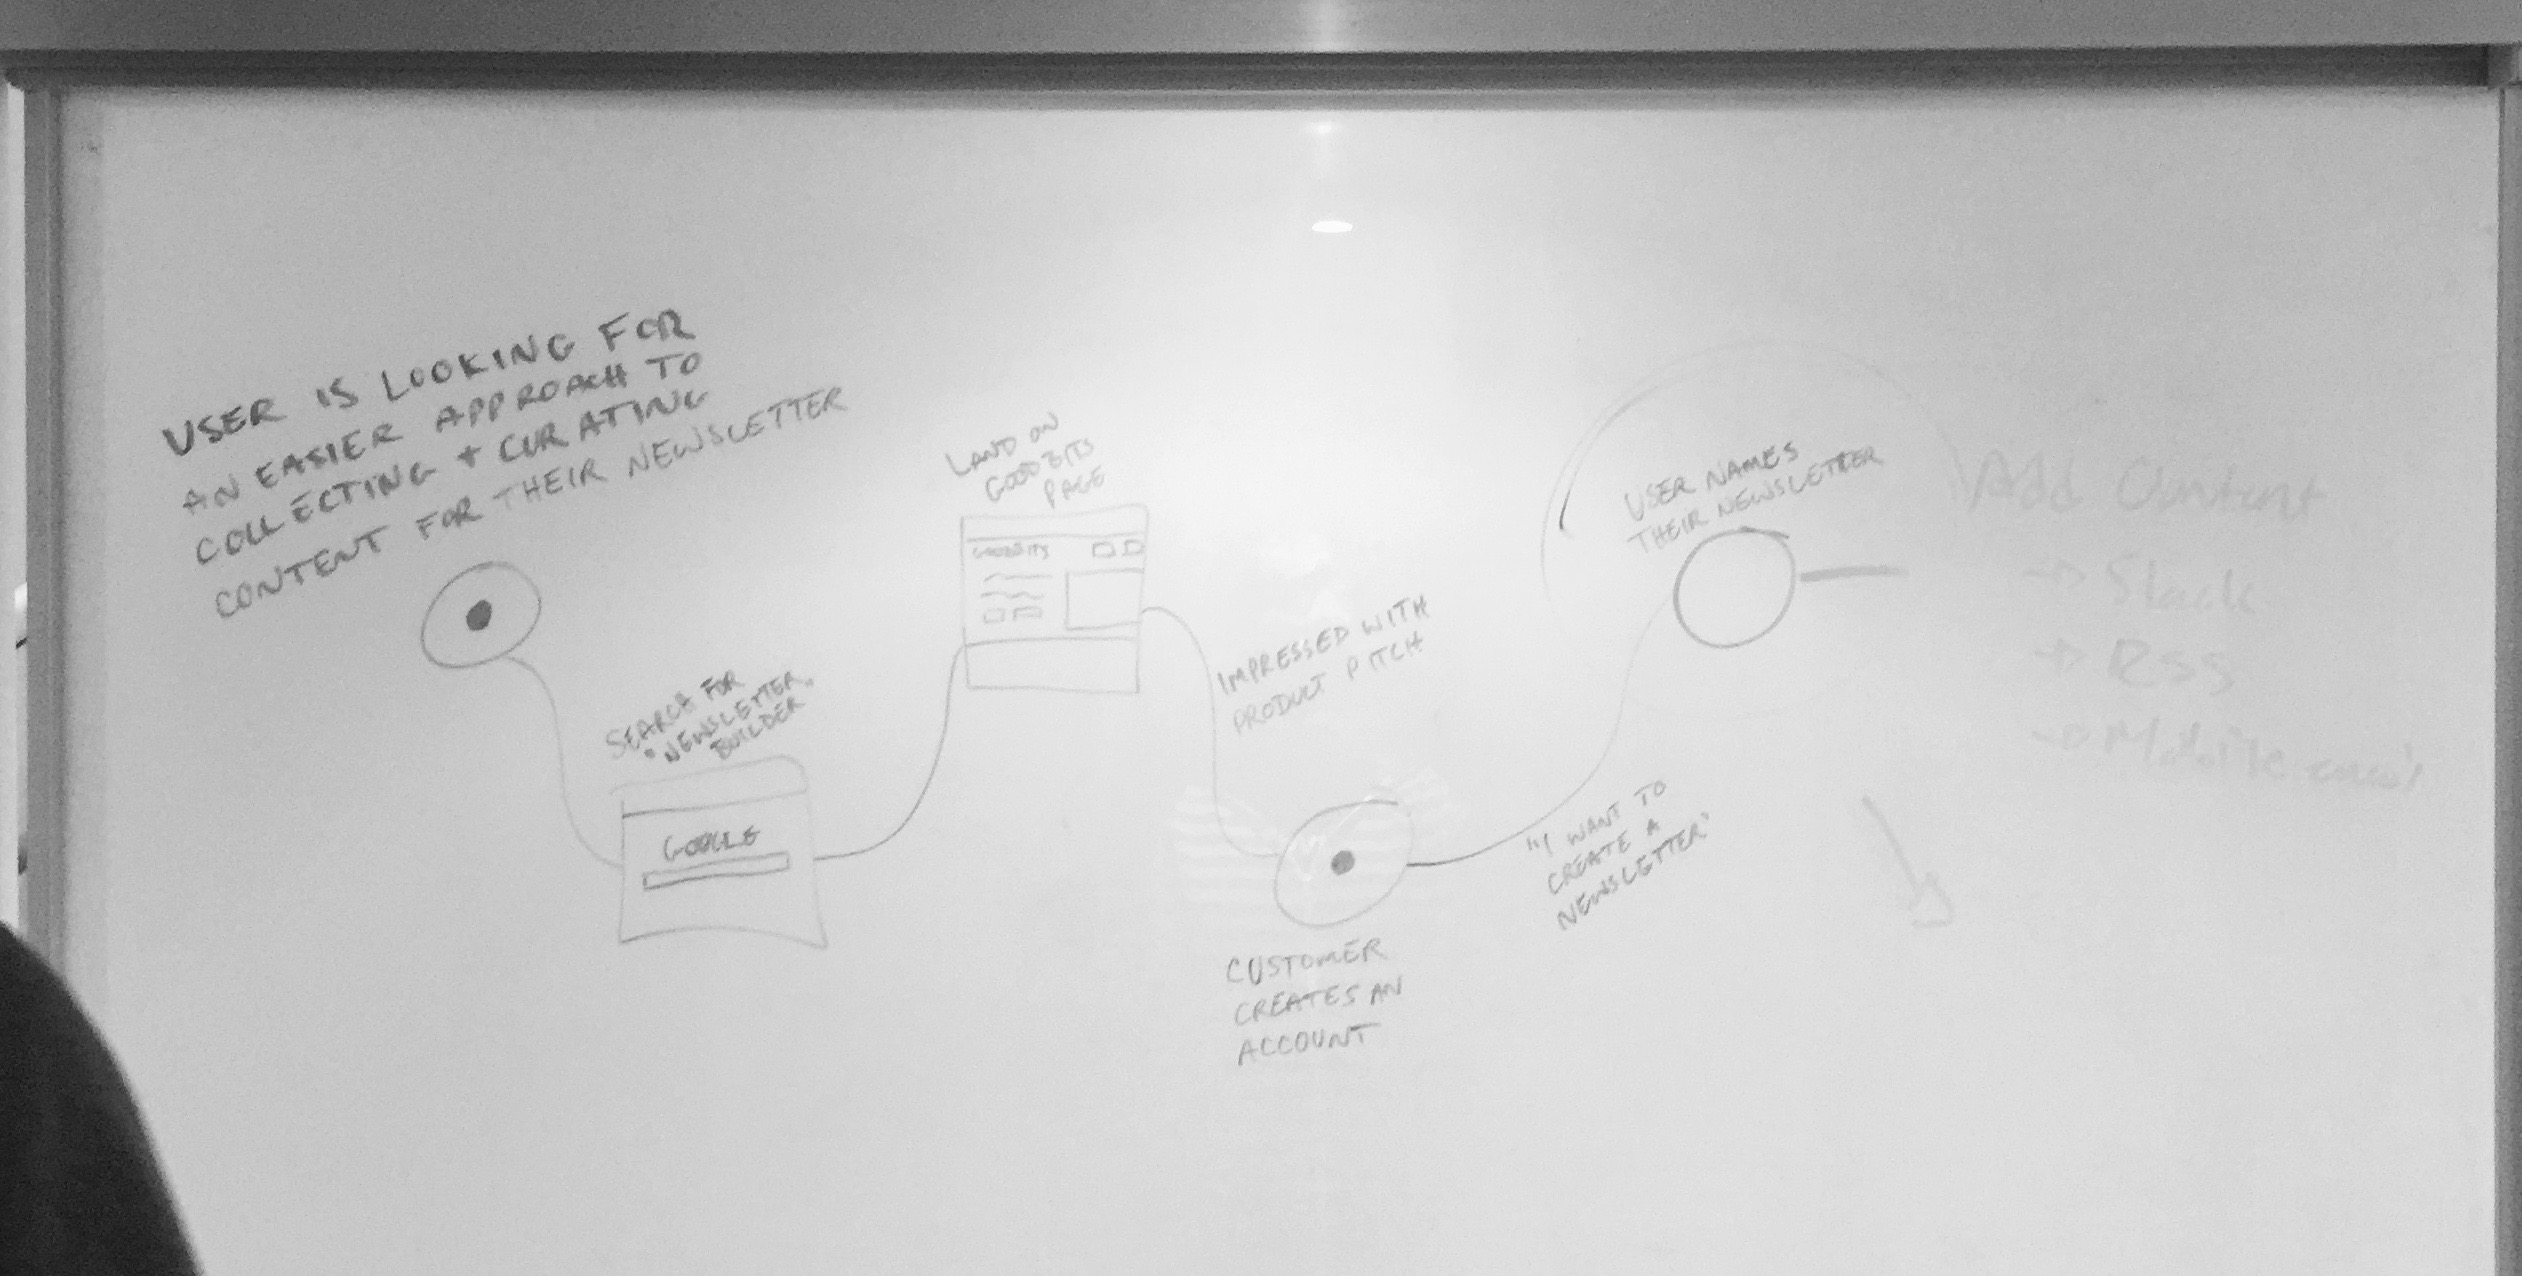 USER IS LOOKING FOR
AN EASIER APPROACH TO
COLLECTING + CURATING
CONTENT FOR THEIR NEWSLETTER
SEARCH FOR
"NEWSLETTER
BUILDER"
GOOGLE
LAND ON
GOODBITS
PAGE
GOODBITS
IMPRESSED WITH
PRODUCT PITCH
CUSTOMER
CREATES AN
ACCOUNT
"I WANT TO
CREATE A
NEWSLETTER"
USER NAMES
THEIR NEWSLETTER
Add Content
→ Slack
→ RSS
→ Mobile